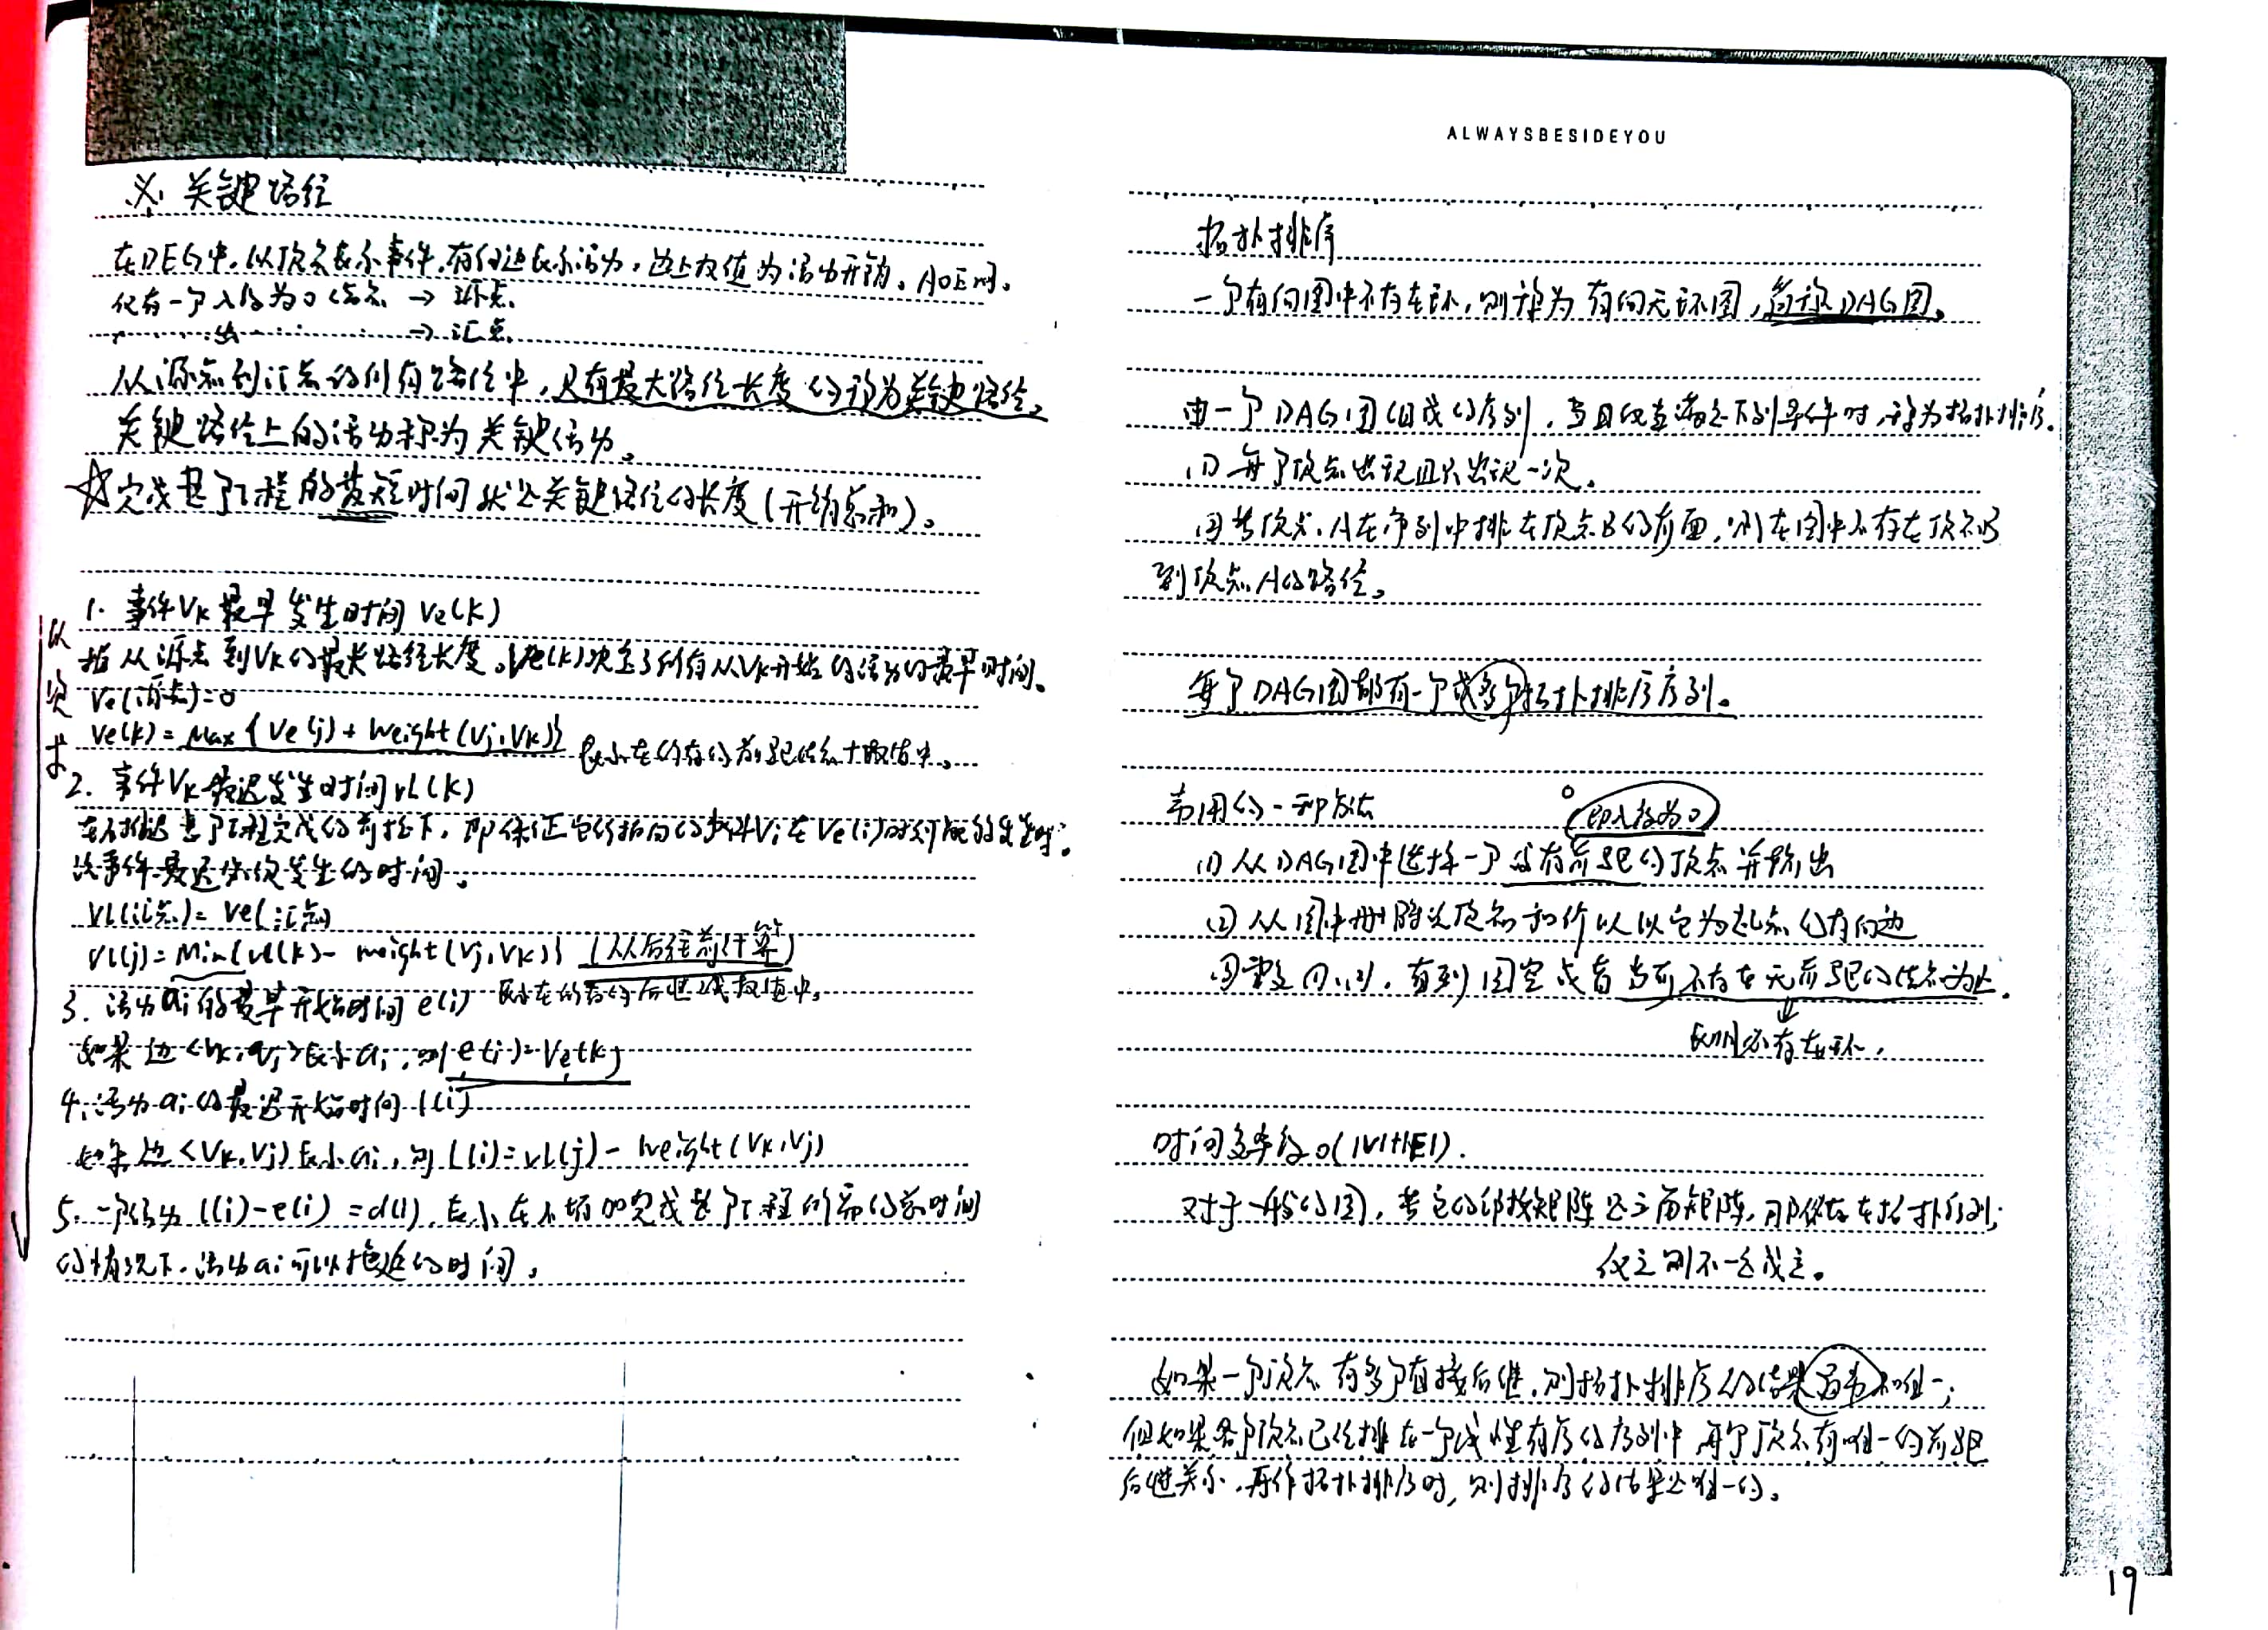 ※ 关键路径
在DEG中,以顶点表示事件,有向边表示活动,边上权值为活动开销。AOE网。
仅有一个入度为0结点 → 源点.
出 → 汇点.
从源点到汇点的所有路径中,具有最大路径长度的称为关键路径。
关键路径上的活动称为关键活动。
☆完成整个工程的最短时间就是关键路径的长度(开销总和)。
以次求
1. 事件Vk最早发生时间 Ve(k)
指从源点到Vk的最长路径长度。Ve(k)决定了所有从Vk开始的活动的最早时间。
Ve(源点)=0
Ve(k)= Max{Ve(j)+Weight(Vj,Vk)} 表示在所有的前驱结点+权值中。
2. 事件Vk最迟发生时间vl(k)
在不推迟整个工程完成的前提下,即保证它所指向的事件Vi在Ve(i)时刻能够发生时.
该事件最迟必须发生的时间。
Vl(汇点)= Ve(汇点)
Vl(j)= Min{vl(k)- weight(Vj,Vk)} (从后往前计算)
表示在所有的后继-权值中.
3. 活动ai的最早开始时间 e(i)
如果边<Vk,Vj>表示ai,则e(i)=Ve(k)
4. 活动ai的最迟开始时间 l(i)
如果边<Vk,Vj)表示ai,则 l(i)=vl(j)- weight(Vk,Vj)
5. 一个活动 l(i)-e(i) =d(i),表示在不增加完成整个工程所需的总时间
的情况下,活动ai可以拖延的时间。
ALWAYSBESIDEYOU
拓扑排序
一个有向图中不存在环,则称为有向无环图,简称DAG图。
由一个DAG图组成的序列,当且仅当满足下列条件时,称为拓扑排序.
(1) 每个顶点出现且只出现一次。
(2) 若顶点A在序列中排在顶点B的前面,则在图中不存在顶点B
到顶点A的路径。
每个DAG图都有一个或多个拓扑排序序列。
常用的一种方法
(即入度为0)
(1) 从DAG图中选择一个没有前驱的顶点并输出
(2) 从图中删除该顶点和所以以它为起点的有向边
(3) 重复(1),(2),直到图空或者当前不存在无前驱的结点为止.
↓
表明必有在环.
时间复杂度O(|V|+|E|).
对于一般的图,若它的邻接矩阵是三角矩阵,那么存在拓扑序列;
反之则不一定成立。
如果一个顶点有多个直接后继,则拓扑排序的结果通常不唯一;
但如果各个顶点已经排在一个线性有序的序列中,每个顶点有唯一的前驱
后继关系,再作拓扑排序时,则排序的结果是唯一的。
19